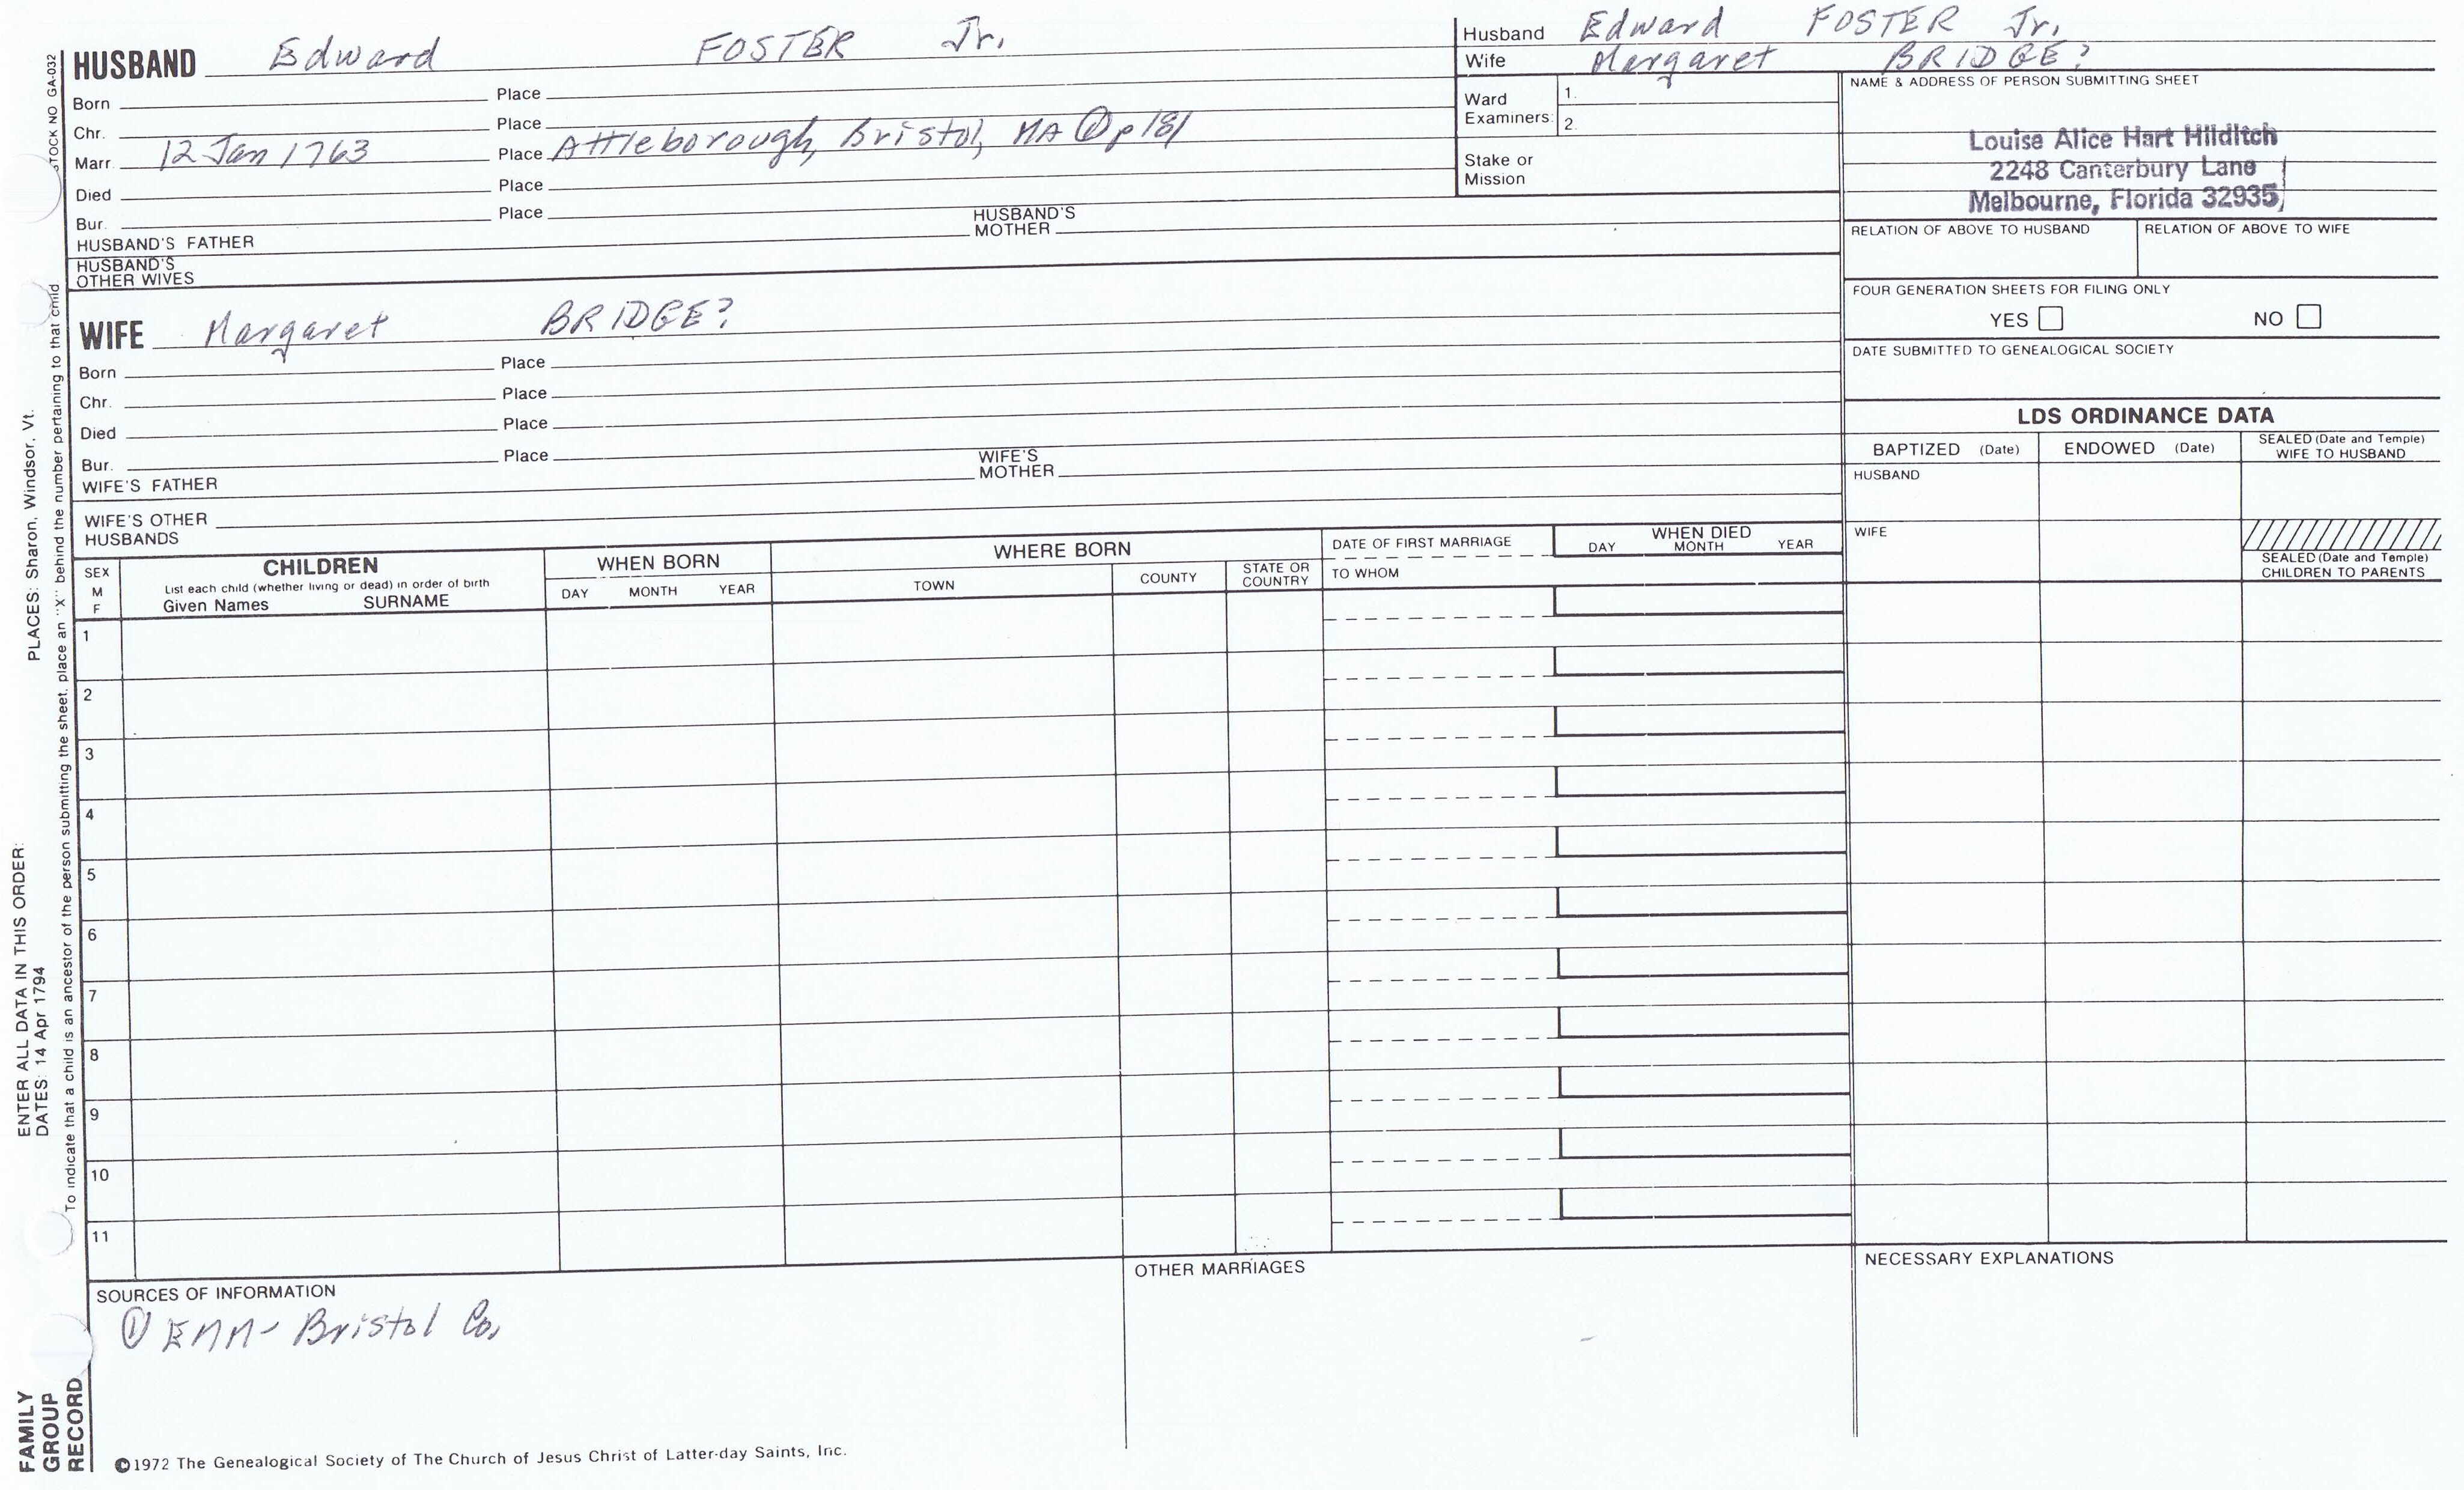 HUSBAND Edward FOSTER Jr.
Born Place
Chr. Place
Marr. 12 Jan 1763 Place Attleborough, Bristol, MA ① p 181
Died Place
Bur. Place
HUSBAND'S FATHER HUSBAND'S MOTHER
HUSBAND'S OTHER WIVES
WIFE Margaret BRIDGE?
Born Place
Chr. Place
Died Place
Bur. Place
WIFE'S FATHER WIFE'S MOTHER
WIFE'S OTHER HUSBANDS
Husband Edward FOSTER Jr.
Wife Margaret BRIDGE?
Ward Examiners: 1.
2.
Stake or Mission
NAME & ADDRESS OF PERSON SUBMITTING SHEET
Louise Alice Hart Hilditch
2248 Canterbury Lane
Melbourne, Florida 32935
RELATION OF ABOVE TO HUSBAND RELATION OF ABOVE TO WIFE
FOUR GENERATION SHEETS FOR FILING ONLY
YES NO
DATE SUBMITTED TO GENEALOGICAL SOCIETY
LDS ORDINANCE DATA
BAPTIZED (Date) ENDOWED (Date) SEALED (Date and Temple) WIFE TO HUSBAND
HUSBAND
WIFE
SEALED (Date and Temple) CHILDREN TO PARENTS
SEX M F
CHILDREN
List each child (whether living or dead) in order of birth
Given Names SURNAME
WHEN BORN
DAY MONTH YEAR
WHERE BORN
TOWN COUNTY STATE OR COUNTRY
DATE OF FIRST MARRIAGE
TO WHOM
WHEN DIED
DAY MONTH YEAR
1
2
3
4
5
6
7
8
9
10
11
SOURCES OF INFORMATION
① EMM- Bristol Co.
OTHER MARRIAGES
NECESSARY EXPLANATIONS
©1972 The Genealogical Society of The Church of Jesus Christ of Latter-day Saints, Inc.
FAMILY
GROUP
RECORD
ENTER ALL DATA IN THIS ORDER:
DATES: 14 Apr 1794
PLACES: Sharon, Windsor, Vt.
To indicate that a child is an ancestor of the person submitting the sheet, place an "X" behind the number pertaining to that child
STOCK NO GA-032